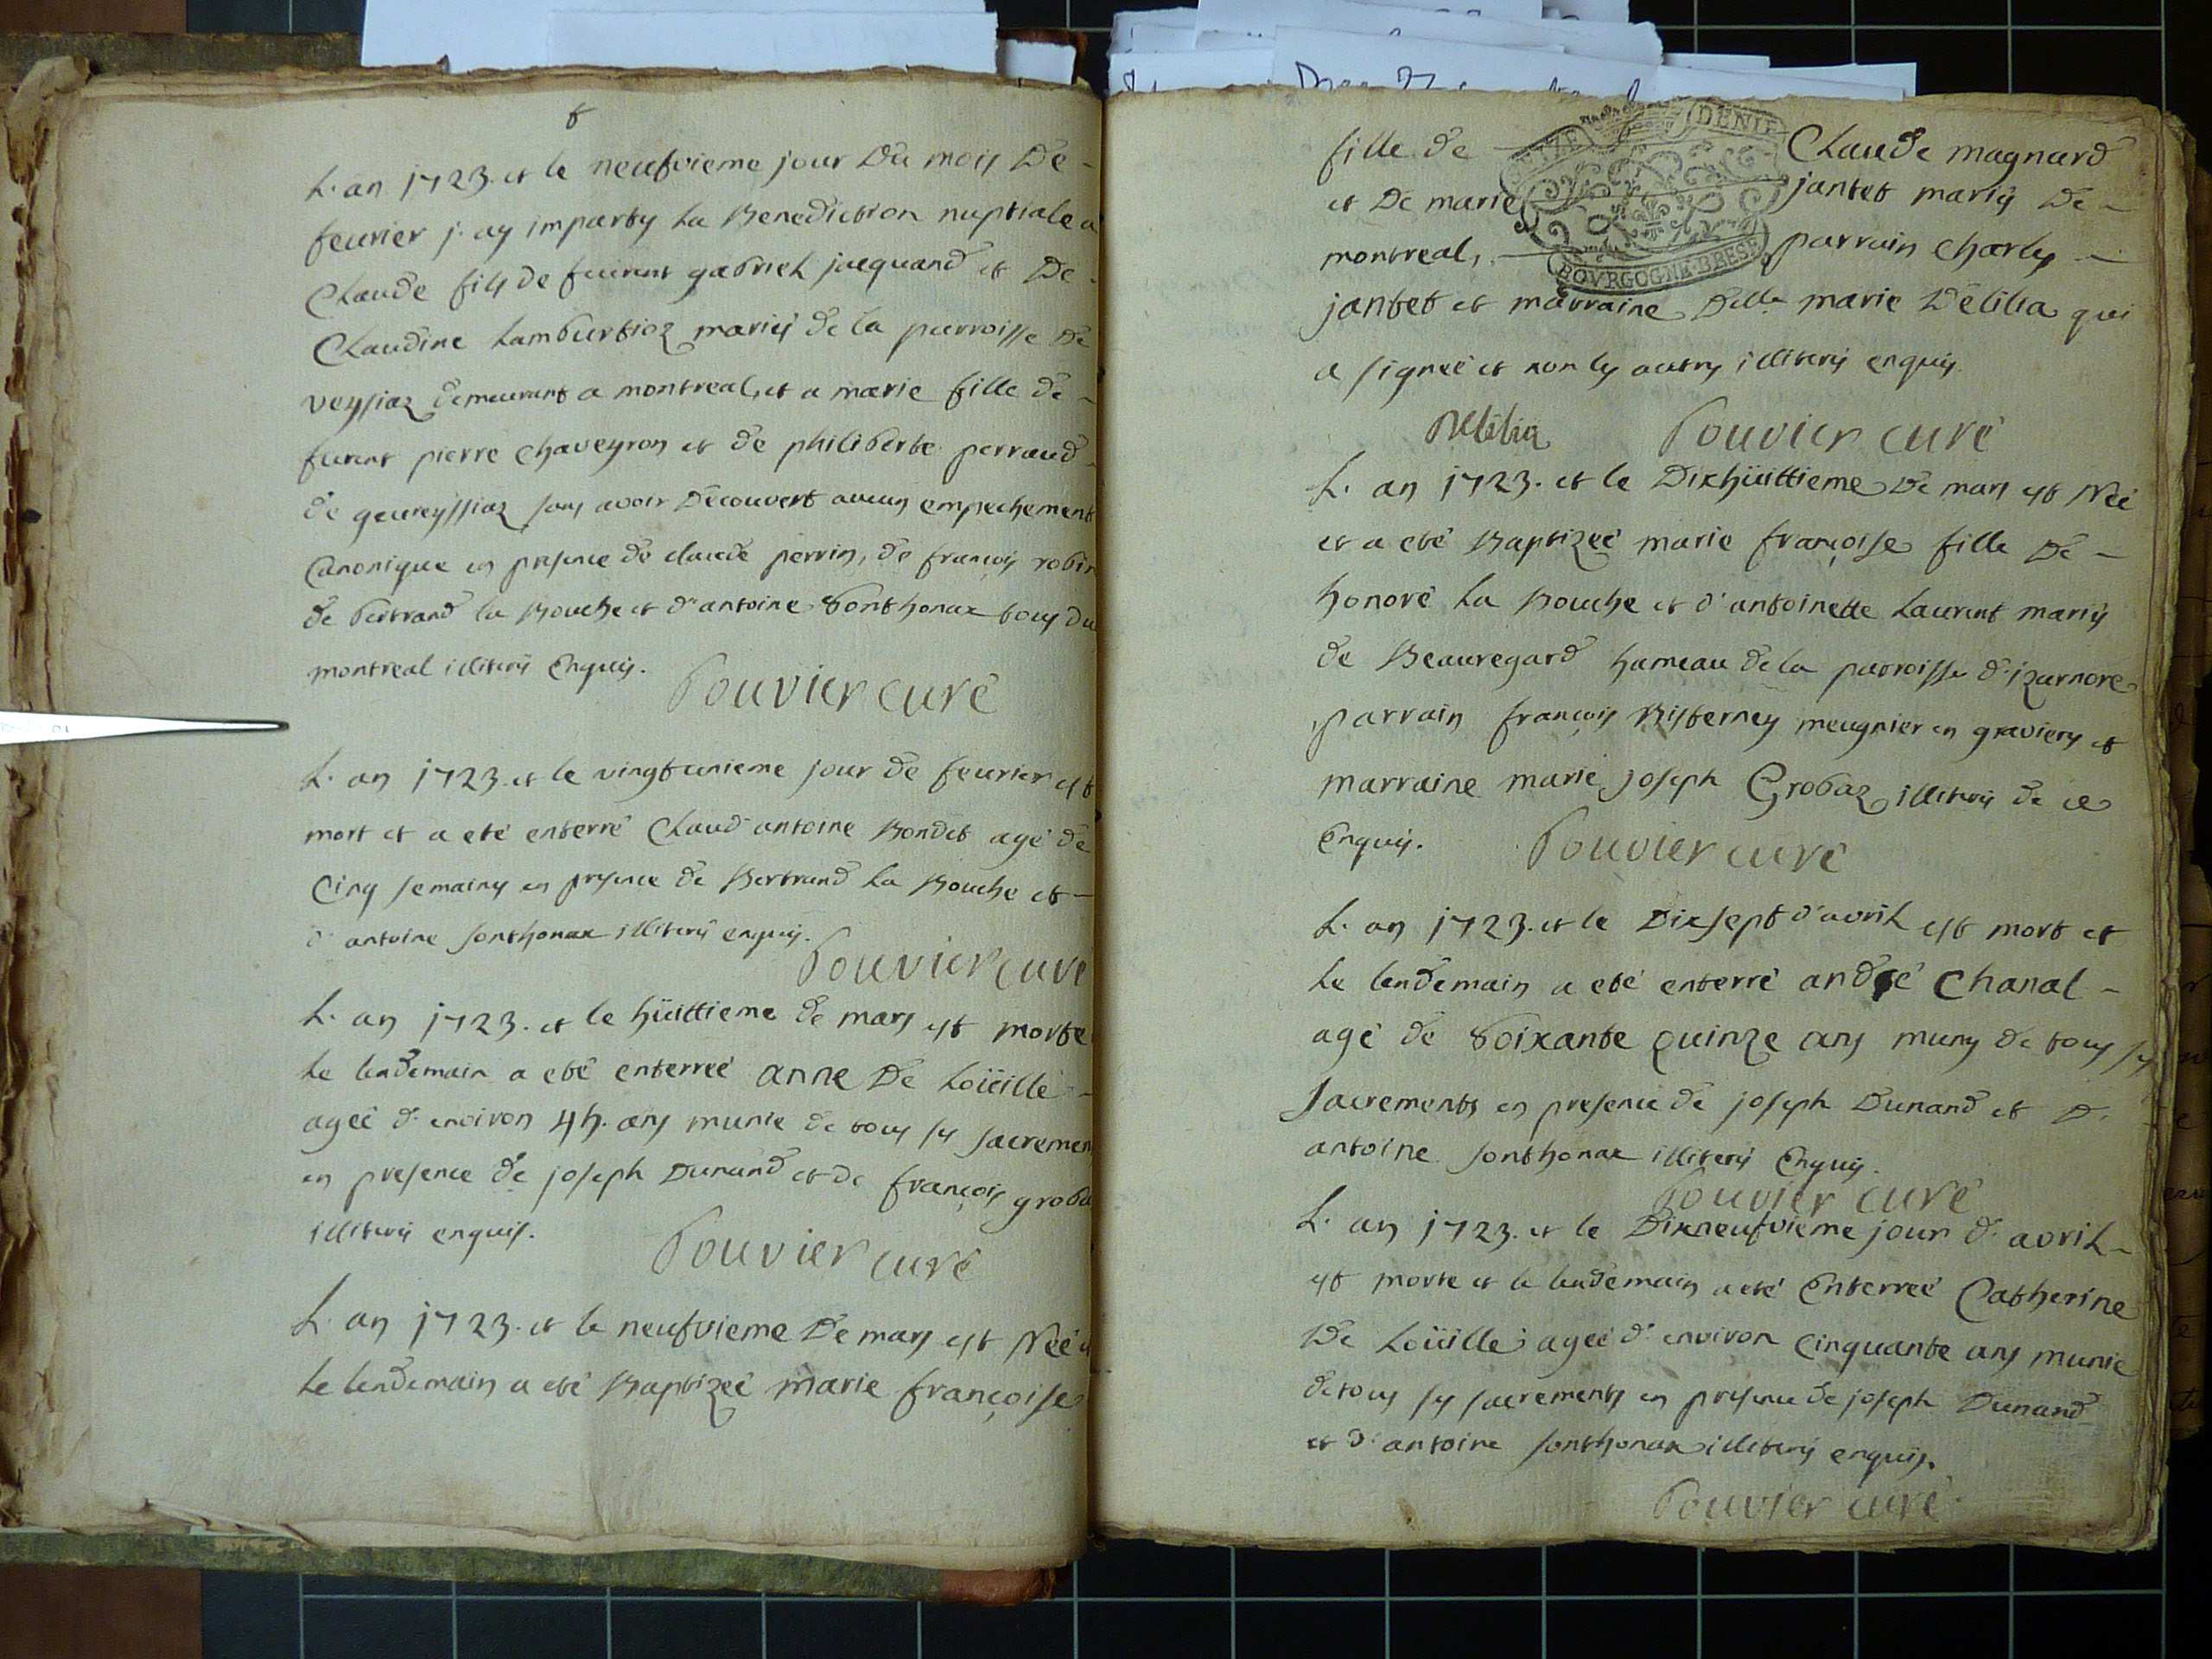 L'an 1723. et le neufvieme jour Du mois De -
fevrier j'ay imparty La Benediction nuptiale a
Claude fils de feurent gabriel jacquand et De
Claudine Lamburtioz mariés de la parroisse De
veyssiaz demeurant a montreal, et a marie fille de -
furent pierre Chaveyron et de philiberte perraud
de geureyssiaz sans avoir Découvert aucun empechement
Canonique en presence de claude perrin, de françois robin
de bertrand la Bouche et d'antoine Sonthonax tous du
montreal illiterés Enquis.
Bouvier curé
L'an 1723. et le vingtunieme jour de fevrier est
mort et a eté enterré Claud antoine Bondet agé de
Cinq semaines en presence de Bertrand La Bouche et -
d'antoine Sonthonax illiterés enquis.
Bouvier curé
L'an 1723. et le hüittieme de mars est morte
Le lendemain a eté enterreé anne De Loüille -
ageé d'environ 45. ans munie de tous ses sacremen
en presence de joseph Dunand et de françois groba
illiterés enquis.
Bouvier curé
L'an 1723. et le neufvieme De mars est Neé et
Le lendemain a eté Baptizeé marie françoise
fille de Claude magnard
SEIZE DENIE
et De marie jantet mariés De -
montreal, parrain Charles -
BOVRGOGNE BRESSE
jantet et marraine Delle marie Délilia qui
a signeé et non les autres illiterés enquis.
Délilia Bouvier curé
L'an 1723. et le Dixhüittieme De mars est Neé
et a eté Baptizeé marie françoise fille De -
honoré La Bouche et d'antoinette Laurent mariés
de Beauregard hameau de la parroisse d'izarnore
parrain françois Bisterney meugnier en graviers et
marraine marie joseph Grobaz illiterés de ce
Enquis. Bouvier curé
L'an 1723. et le Dixsept d'avril est mort et
Le lendemain a eté enterré andré Chanal -
agé de Soixante quinze ans muny de tous ses
Sacrements en presence de joseph Dunand et D'
antoine Sonthonax illiterés Enquis.
Bouvier curé
L'an 1723. et le Dixneufvieme jour d'avril -
est morte et le lendemain a eté Enterreé Catherine
De Loüille ageé d'environ Cinquante ans munie
de tous ses sacrements en presence de joseph Dunand
et d'antoine Sonthonax illiterés enquis.
Bouvier curé